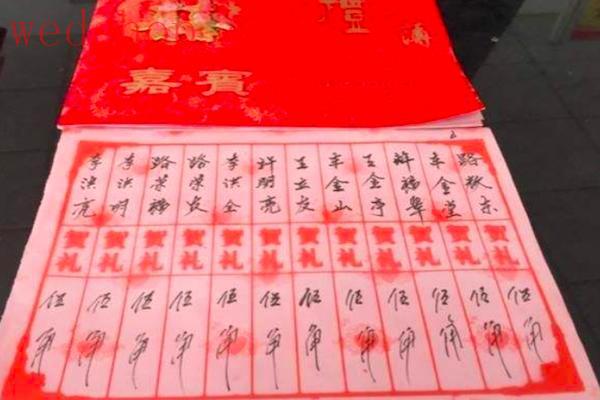 禮簿
嘉賓
路东 贺礼 伍角
车金堂 贺礼 伍角
福 贺礼 伍角
王金亭 贺礼 伍角
车金山 贺礼 伍角
王立友 贺礼 伍角
许明亮 贺礼 伍角
李洪全 贺礼 伍角
路荣发 贺礼 伍角
路荣福 贺礼 伍角
李洪明 贺礼 伍角
李洪亮 贺礼 伍角